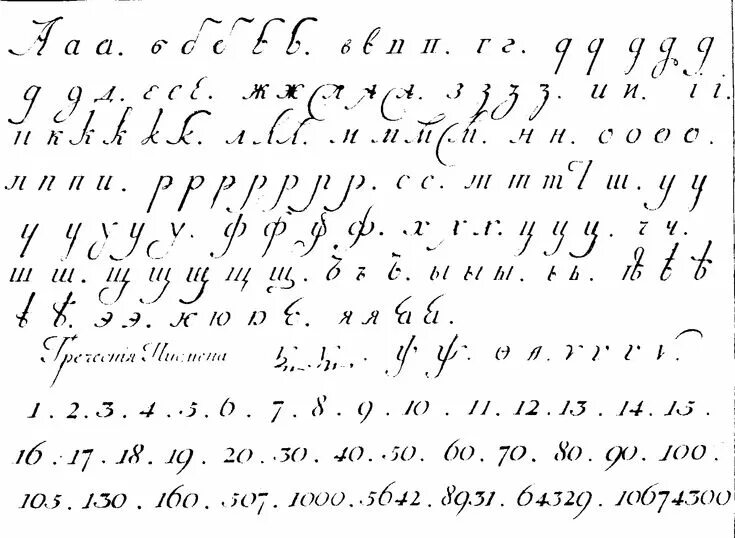 А а а. б б б б б. в в п п. г г. д д д д д
д д д. е е е. ж ж ж ж ж. з з з з. и и. і і.
и к к к к к. л л л. м м м м. н н. о о о о.
п п п п. р р р р р р р. с с. т т т т ш. у у
у у у у у. ф ф ф ф. х х х. ц ц ц. ч ч.
ш ш. щ щ щ щ щ. ъ ъ ъ. ы ы ы. ь ь. ѣ ѣ ѣ
ѣ ѣ. э э. ю ю ю ю. я я я я.
Греческія Писмена ѱ ѱ. ѳ ѳ. ѵ ѵ ѵ ѵ ѵ.
1 . 2 . 3 . 4 . 5 . 6 . 7 . 8 . 9 . 10 . 11 . 12 . 13 . 14 . 15 .
16 . 17 . 18 . 19 . 20 . 30 . 40 . 50 . 60 . 70 . 80 . 90 . 100 .
105 . 130 . 160 . 507 . 1000 . 5642 . 8931 . 64329 . 10674300